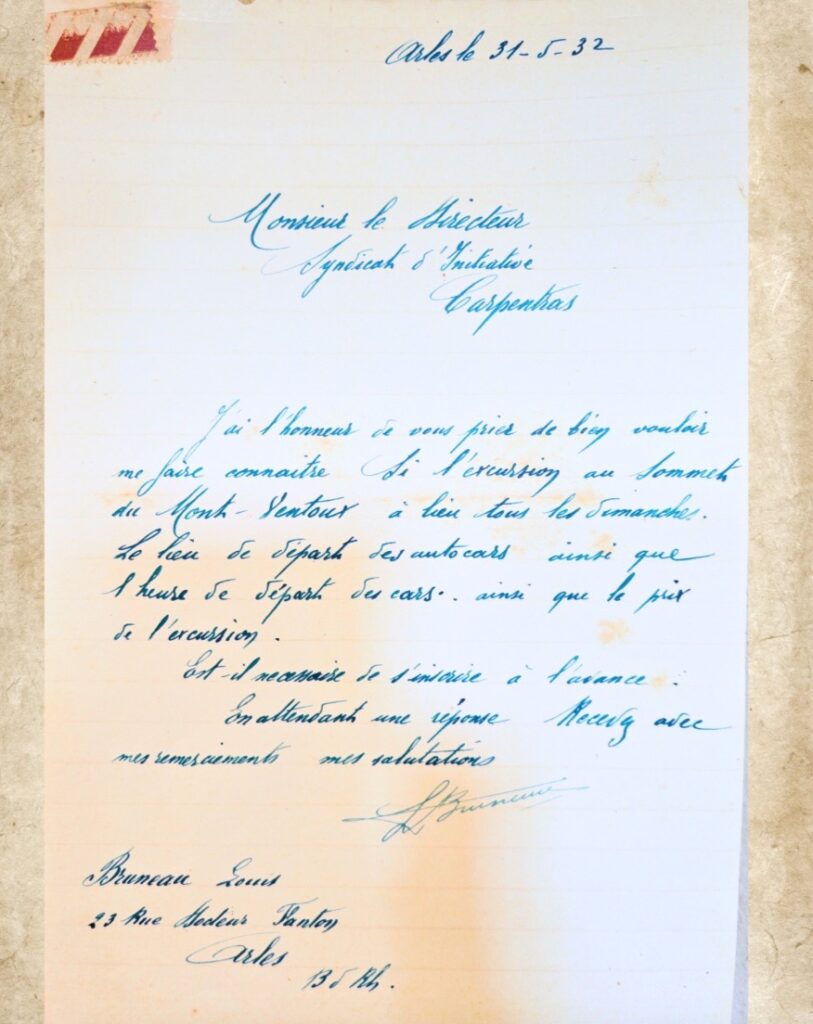 Arles le 31-5-32
Monsieur le Directeur
Syndicat d'Initiative
Carpentras
J'ai l'honneur de vous prier de bien vouloir
me faire connaitre Si l'excursion au Sommet
du Mont-Ventoux à lieu tous les dimanches.
Le lieu de départ des autocars ainsi que
l'heure de départ des cars. ainsi que le prix
de l'excursion.
Est-il necessaire de s'inscrire à l'avance.
En attendant une réponse Recevez avec
mes remerciements mes salutations
L Bruneau
Bruneau Louis
23 Rue Docteur Fanton
Arles
B d Rh.